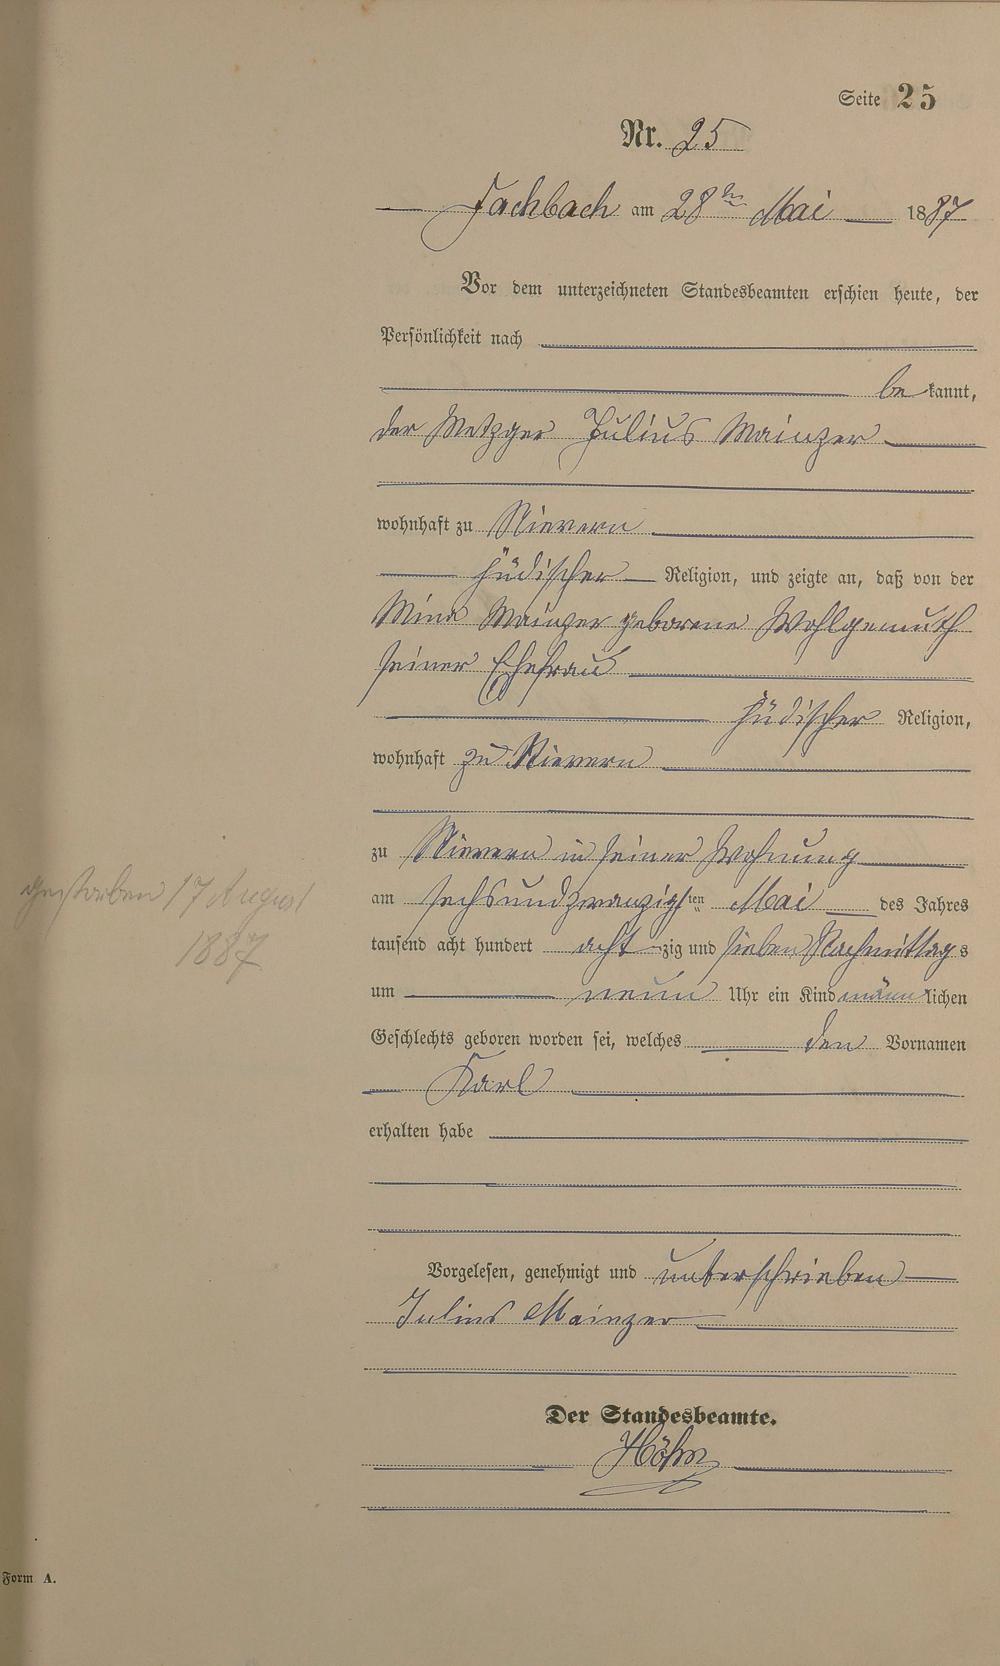 Seite 25
Nr. 25
Fachbach am 28ten Mai 1887
Vor dem unterzeichneten Standesbeamten erschien heute, der
Persönlichkeit nach
be kannt,
der Metzger Julius Mainzer
wohnhaft zu Nievern
jüdischer Religion, und zeigte an, daß von der
Mina Mainzer geborene Wohlgemuth
seiner Ehefrau
jüdischer Religion,
wohnhaft zu Nievern
zu Nievern in seiner Wohnung
am sechsundzwanzigsten Mai des Jahres
tausend acht hundert acht zig und sieben Nachmittags
um neun Uhr ein Kind männlichen
Geschlechts geboren worden sei, welches den Vornamen
Karl
erhalten habe
Vorgelesen, genehmigt und unterschrieben
Julius Mainzer
Der Standesbeamte.
Höhn
gestorben 17 August
1887
Form A.